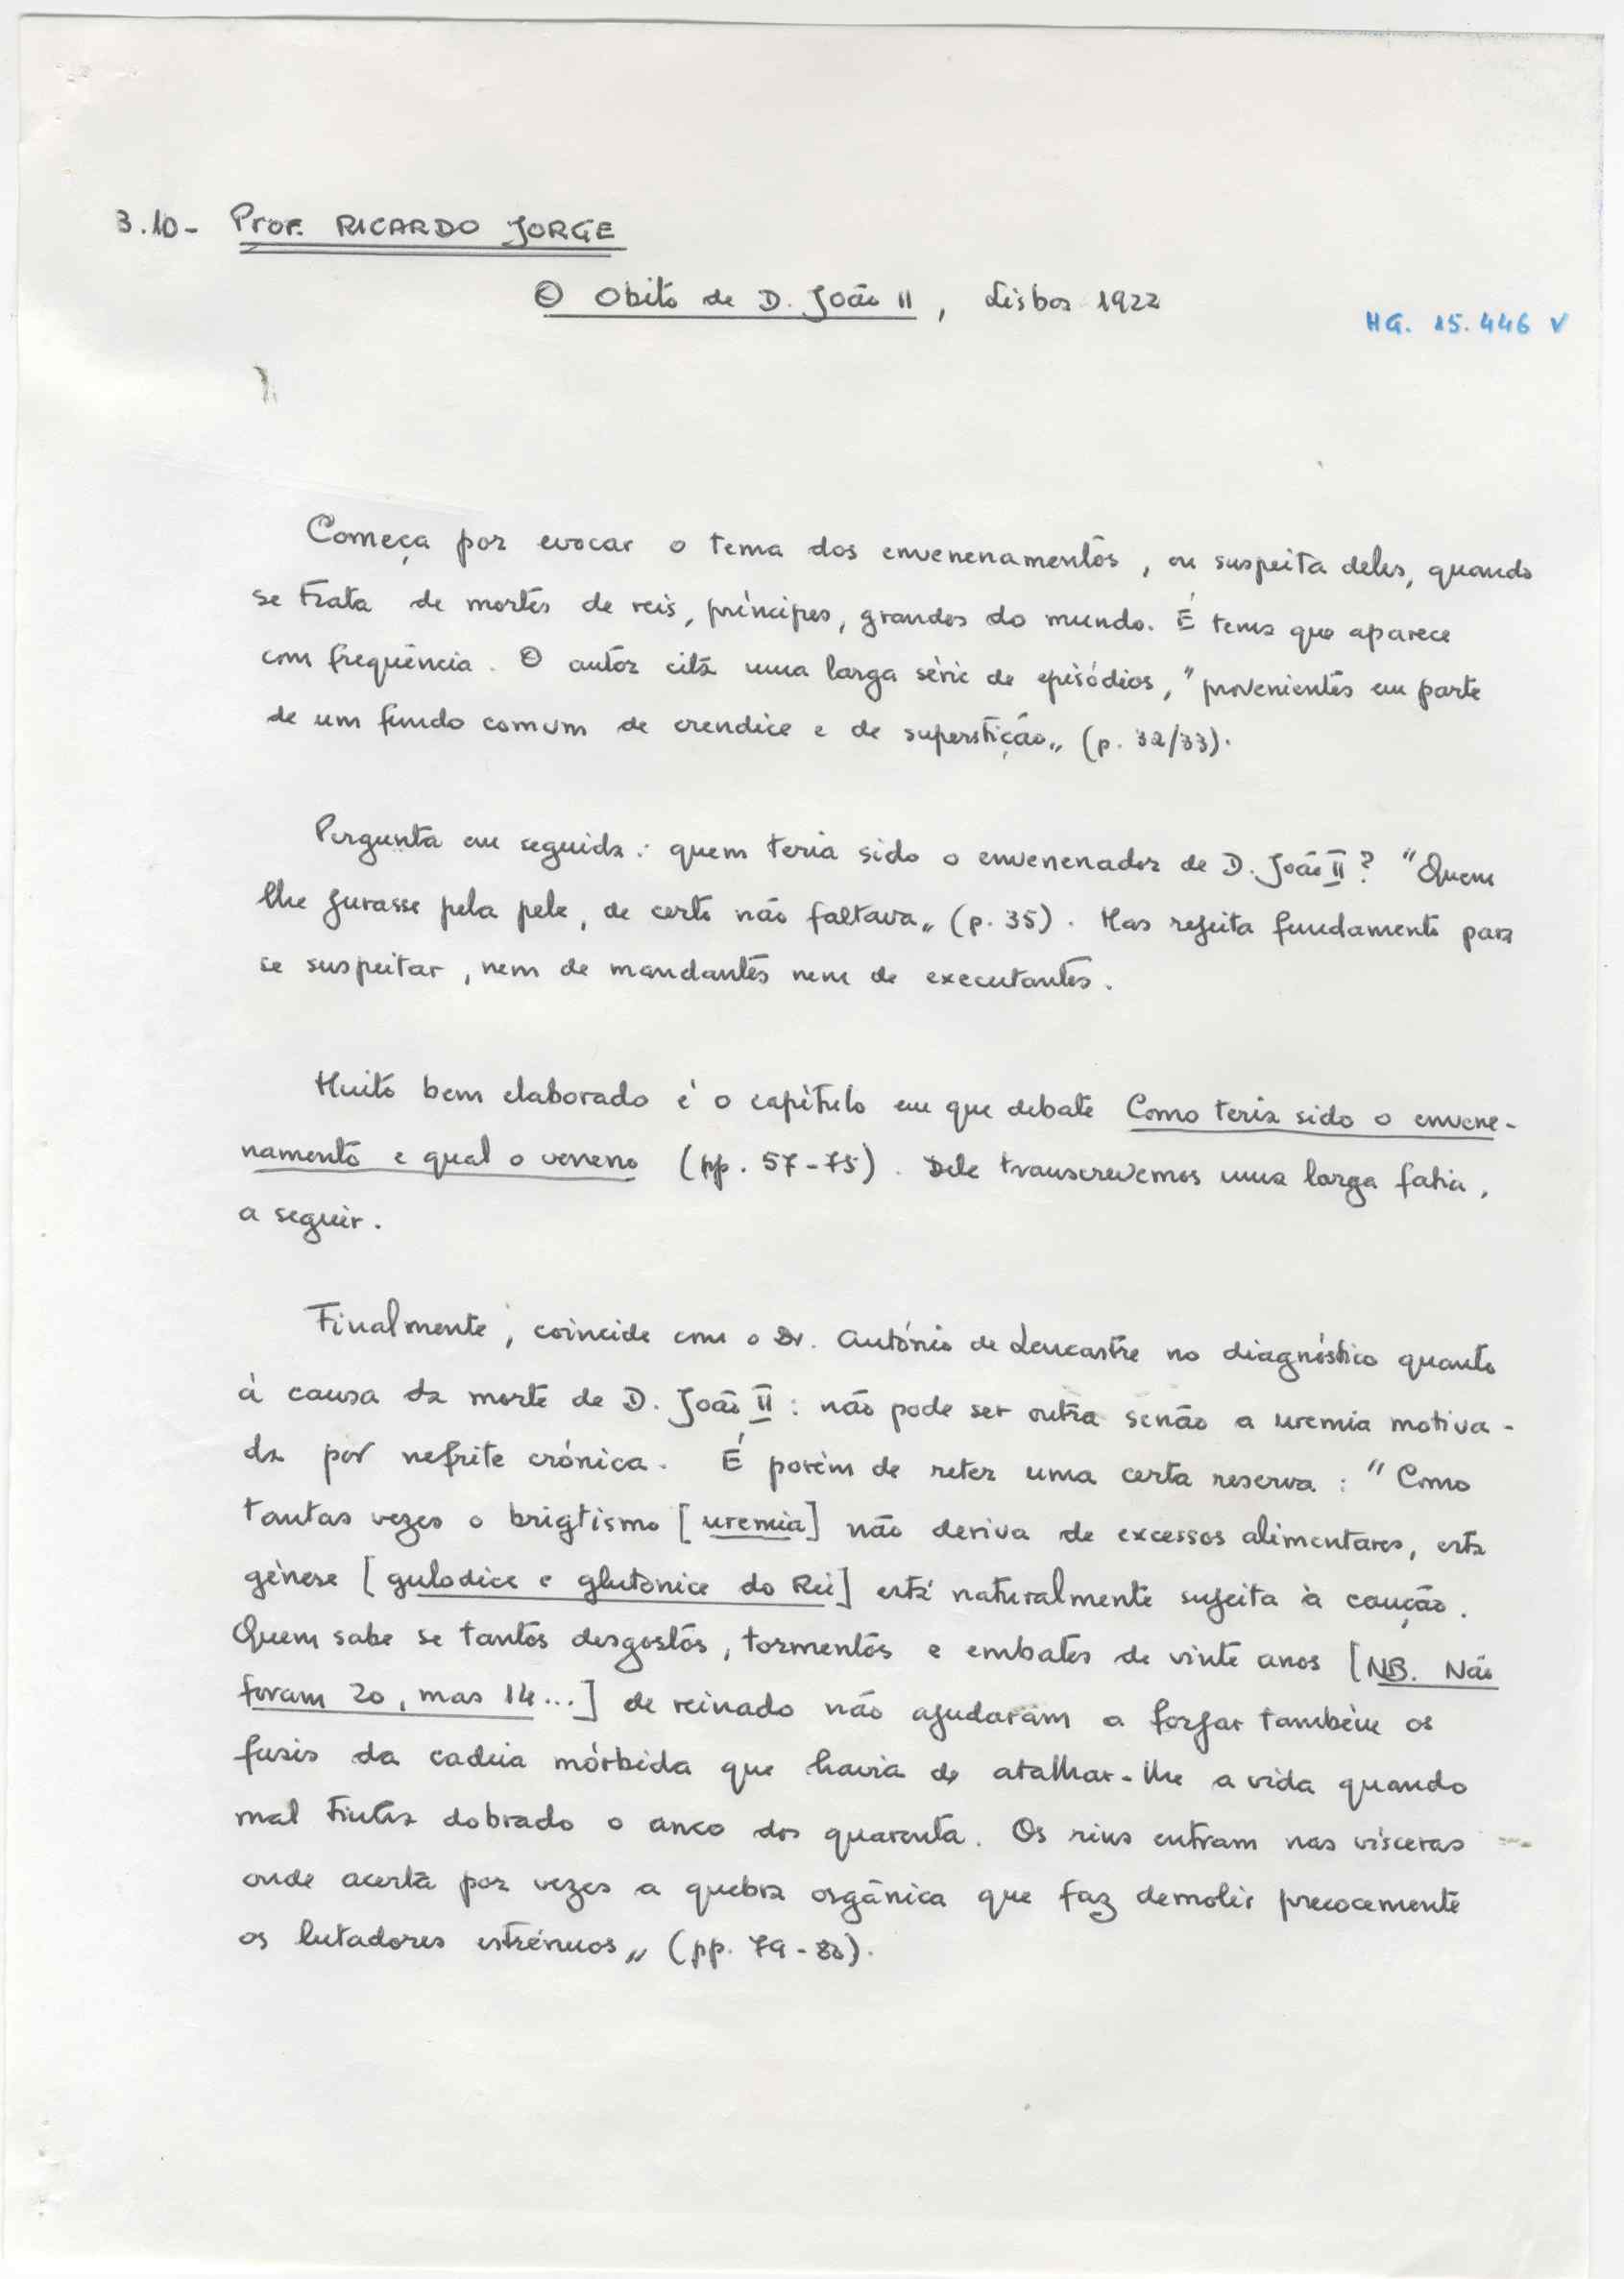 3.10- Prof. RICARDO JORGE
O Obito de D. João II, Lisboa 1922
HG. 15.446 V
Começa por evocar o tema dos envenenamentos, ou suspeita deles, quando
se trata de mortes de reis, príncipes, grandes do mundo. É tema que aparece
com frequência. O autor cita uma larga série de episódios, "provenientes em parte
de um fundo comum de crendice e de superstição„ (p. 32/33).
Pergunta em seguida: quem teria sido o envenenador de D. João II? "Quem
lhe jurasse pela pele, de certo não faltava„ (p. 35). Mas rejeita fundamento para
se suspeitar, nem de mandantes nem de executantes.
Muito bem elaborado é o capítulo em que debate Como teria sido o envene-
namento e qual o veneno (pp. 57-75). Dele transcrevemos uma larga fatia,
a seguir.
Finalmente, coincide com o Dr. António de Lencastre no diagnóstico quanto
à causa da morte de D. João II: não pode ser outra senão a uremia motiva-
da por nefrite crónica. É porém de reter uma certa reserva: "Como
tantas vezes o brigtismo [uremia] não deriva de excessos alimentares, esta
génese [gulodice e glutonice do Rei] está naturalmente sujeita à caução.
Quem sabe se tantos desgostos, tormentos e embates de vinte anos [NB. Não
foram 20, mas 14...] de reinado não ajudaram a forjar também os
fusis da cadeia mórbida que havia de atalhar-lhe a vida quando
mal tinha dobrado o anco dos quarenta. Os rins entram nas vísceras
onde acerta por vezes a quebra orgânica que faz demolir precocemente
os lutadores estrénuos„ (pp. 79-80).